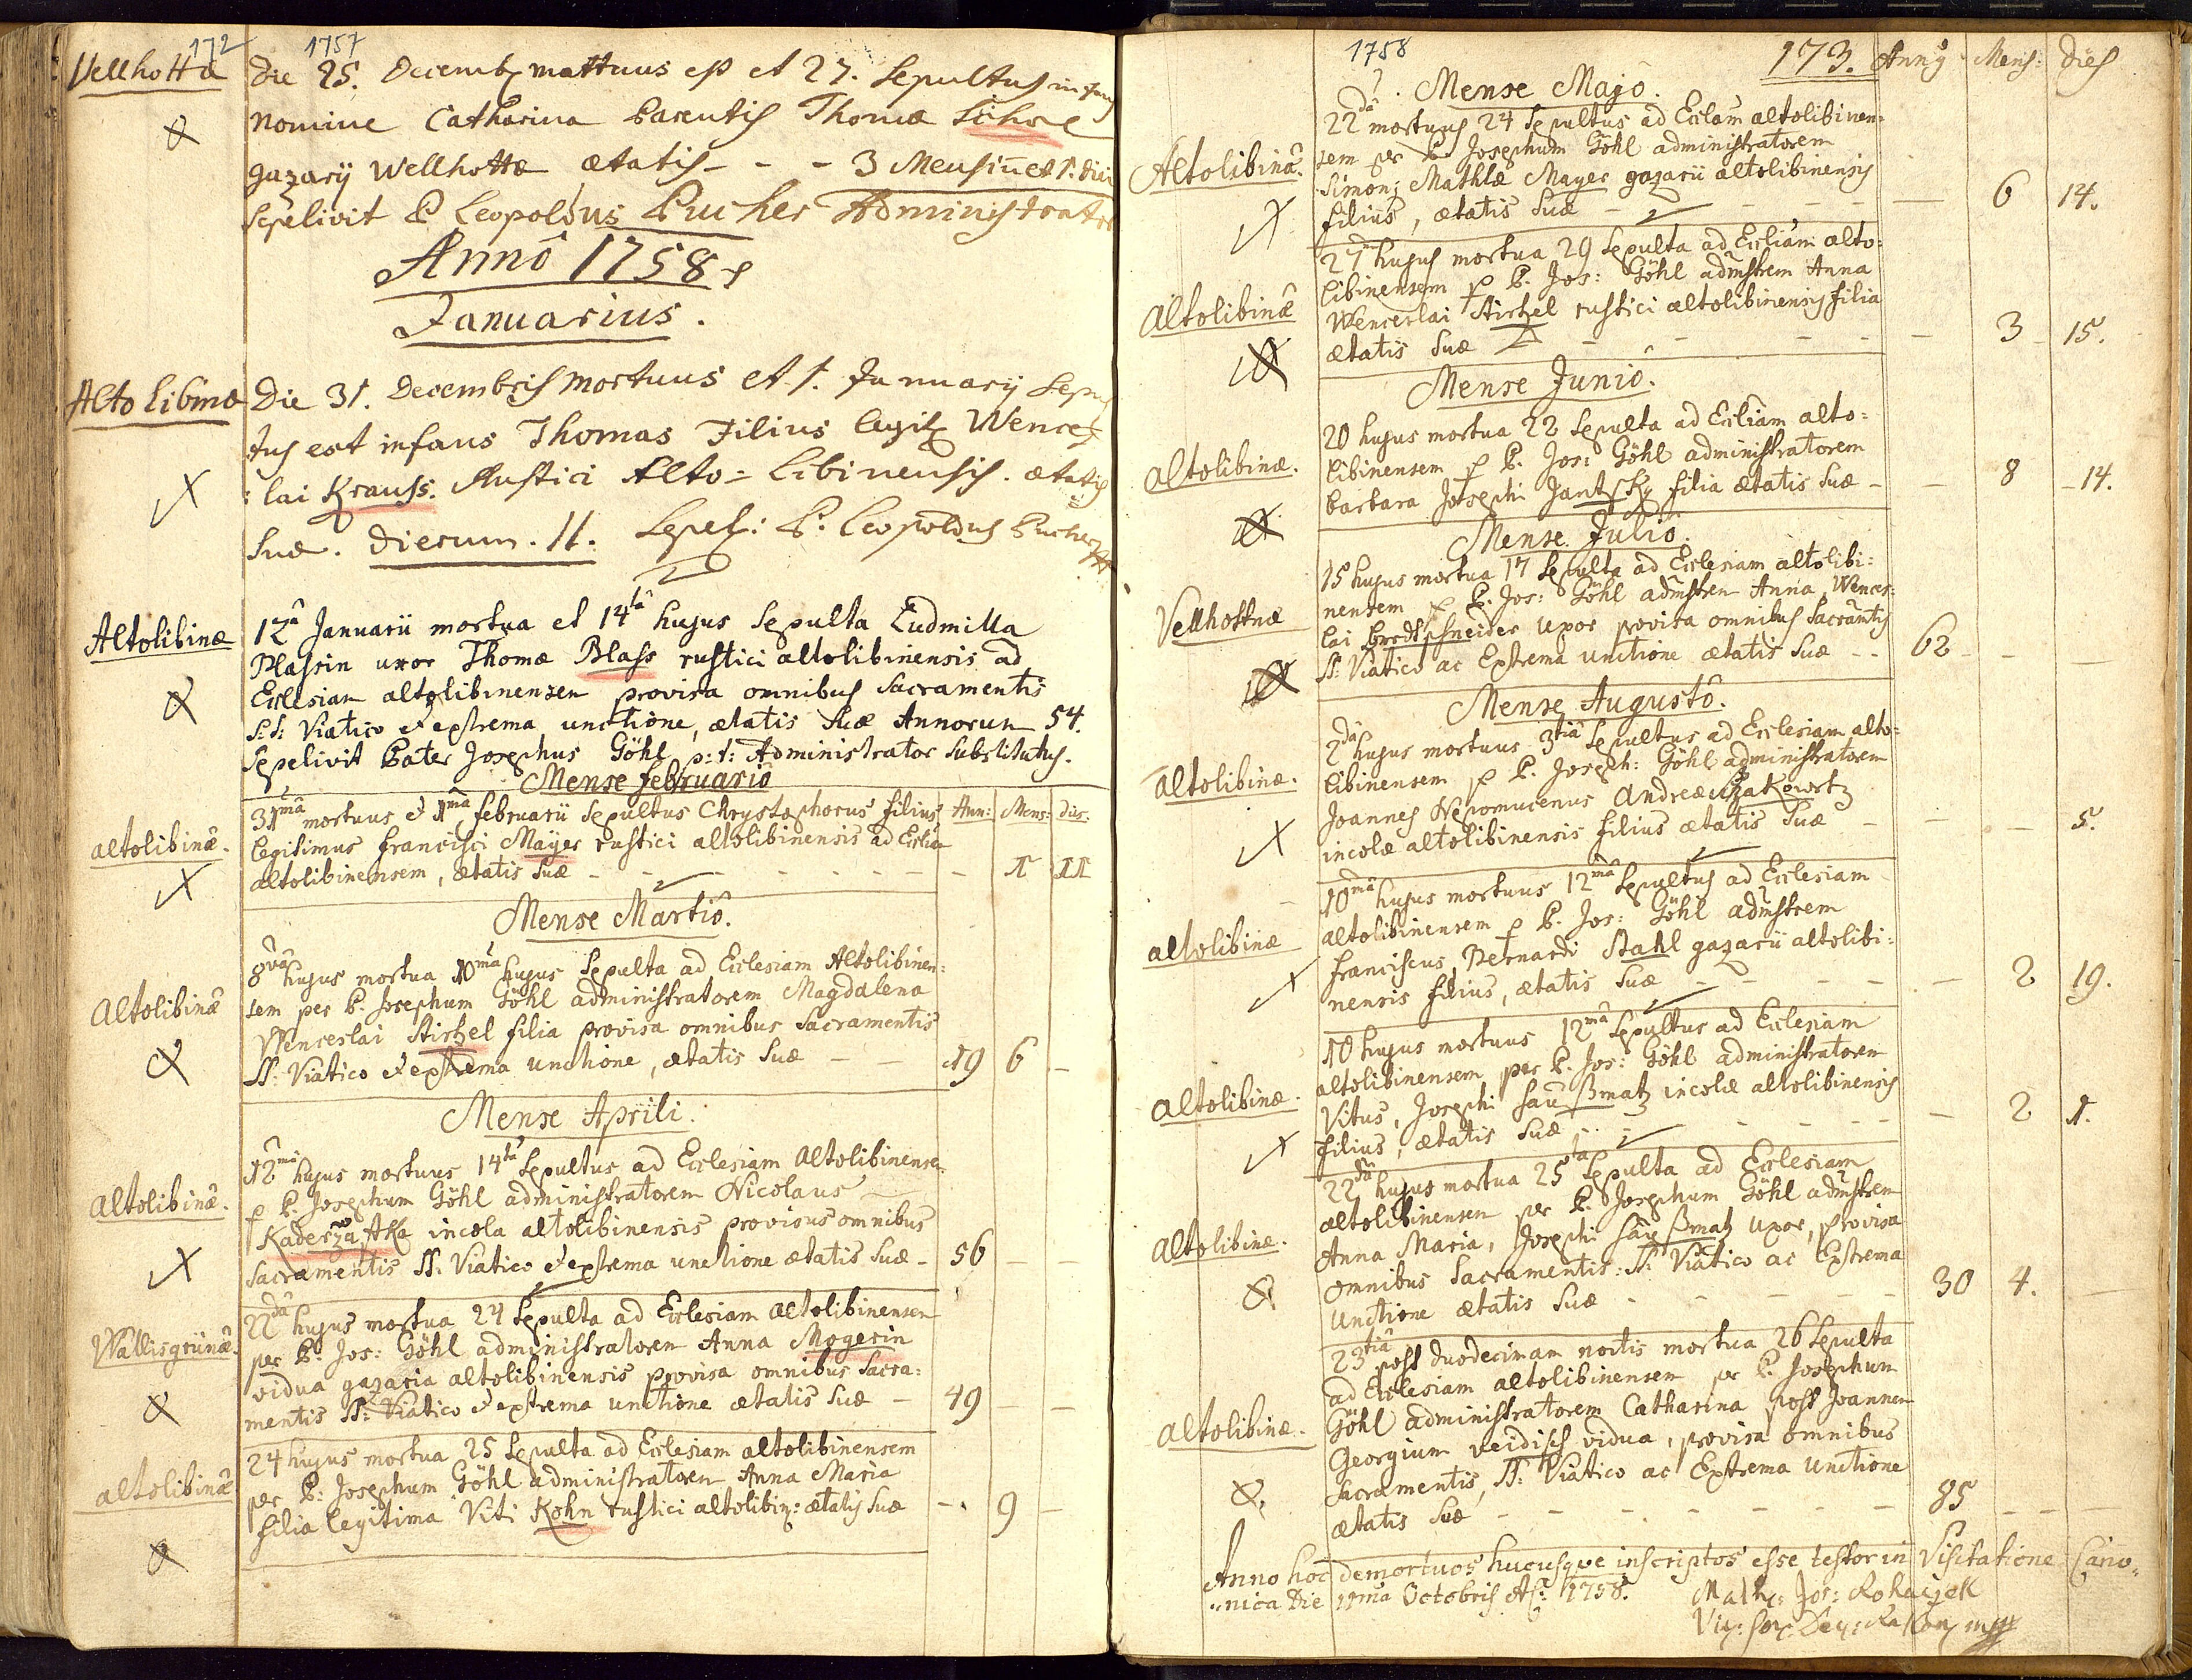 172
1757
Vellhotta
Die 25. Decemb mattuus est et 27. Sepultus infans
Nomine Catharina Parentis Thomæ
gazarij Wellhottæ ætatis - - 3 Mensiū et 1. diei
Sepelivit P. Leopoldus Pucher Administrator
Anno 1758
Januarius.
Alto libinæ
Die 31. Decembris mortuus et 1. Januarij Sepul
tus est infans Thomas Filius legit Wences
: lai Krauss. Rustici Alto = Libinensis. ætatis
Suæ. Dierum. 11. Sepel: P. Leopoldus Pucher
Altolibinæ
12â Januarii mortua et 14tâ hujus Sepulta Ludmilla
Plassin uxor Thomæ Blass rustici altolibinensis ad
Ecclesiam altolibinensem provisa omnibus Sacramentis
S:S: Viatico et extrema unctione, ætatis Suæ Annorum 54.
Sepelivit Pater Josephus Göhl p: t: Administrator Substitutus.
Mense februariô
Ann: Mens: dies:
altolibinâ.
31mâ mortuus et 1mâ februarii Sepultus Chrystophorus filius
legitimus francisci Mayer rustici altolibinensis ad Eccliā
altolibinensem, ætatis Suæ - - - - - - - 1 11
Mense Martiô.
Altolibinâ
8vâ hujus mortua 10mâ hujus Sepulta ad Ecclesiam Altolibinen-
sem per P. Josephum Göhl administratorem Magdalena
Wenceslai Stirhel filia provisa omnibus Sacramentis
SS: Viatico et extrema unctione, ætatis Suæ - - 19 6 -
Mense Aprili.
altolibinâ.
12mâ hujus mortuus 14tâ Sepultus ad Ecclesiam altolibinensem
p P. Josephum Göhl administratorem Nicolaus
Kaderzaſka incola altolibinensis provisus omnibus
Sacramentis SS. Viatico et extrema unctione ætatis Suæ - 56 - -
Wällisgrünâ.
22dâ hujus mortua 24 Sepulta ad Ecclesiam altolibinensem
per P: Jos: Göhl administratorem Anna Mogerin
vidua gazaria altolibinensis provisa omnibus Sacra:
mentis SS: Viatico et extrema unctione ætatis Suæ - 49 - -
altolibinâ
24 hujus mortua 25 Sepulta ad Ecclesiam altolibinensem
per P: Josephum Göhl administratorem Anna Maria
filia legitima Viti Kohn rustici altolibin: ætatis Suæ - 9 -
1758
173. Anny Mens: dies
Mense Majo.
Altolibinâ.
22dâ mortuus 24 Sepultus ad Ecclam altolibinen:
sem per P. Josephum Göhl administratorem
Simon, Mathiæ Mayer gazarii altolibinensis
filius, ætatis Suæ - - - 6 14.
altolibinâ
27 hujus mortua 29 Sepulta ad Eccliam alto:
libinensem p P. Jos: Göhl admstrem Anna
Wenceslai Stirhel rustici altolibinensis filia
ætatis Suæ - - - - 3 - 15.
Mense Juniô.
altolibinæ.
20 hujus mortua 22 Sepulta ad Eccliam alto=
libinensem p P. Jos: Göhl administratorem
barbara Josephi Jantsky filia ætatis Suæ - - 8 - 14.
Mense Julio.
Vellhottæ
15 hujus mortua 17 Sepulta ad Ecclesiam altolibi:
nensem p P. Jos: Göhl admstrem Anna, Wences:
lai bredschneider Uxor provisa omnibus Sacramtis
SS: Viatico ac Extrema unctione ætatis Suæ - - 62 - -
Mense Augustô.
altolibinæ.
2dâ hujus mortuus 3tiâ Sepultus ad Ecclesiam alto:
libinensem p P. Joseph: Göhl administratorem
Joannes Nepomucenus Andreæ
incolæ altolibinensis filius ætatis Suæ - - - 5.
altolibinæ
10mâ hujus mortuus 12mâ Sepultus ad Ecclesiam
altolibinensem p P. Jos: Göhl admstrem
franciscus, Bernardi Stahl gazarii altolibi:
nensis filius, ætatis Suæ - - - - 2 19.
altolibinæ.
10 hujus mortuus 12mâ Sepultus ad Ecclesiam
altolibinensem per P. Jos: Göhl administratorem
Vitus, Josephi Sauβmatz incolæ altolibinensis
filius, ætatis Suæ - - - - 2 1.
altolibinæ.
22dâ hujus mortua 25tâ Sepulta ad Ecclesiam
altolibinensem per P. Josephum Göhl admstrem
Anna Maria, Josephi Sauβmatz Uxor, provisa
omnibus Sacramentis: SS: Viatico ac Extrema
Unctione ætatis Suæ - - - - 30 4. -
altolibinæ.
23tiâ post duodecimam noctis mortua 26 Sepulta
ad Ecclesiam altolibinensem per P. Josephum
Göhl administratorem Catharina post Joannem
Georgium veidisch vidua, provisa omnibus
Sacramentis, SS: Viatico ac Extrema Unctione
ætatis Suæ - - - - - 85 - -
Anno hoc demortuos hucusque inscriptos esse testor in Visitatione Cano„
„nica Die 11ma Octobris A: 1758. Math: Jos: Rokeizek
Vic: For: Dec: Rakon mpp